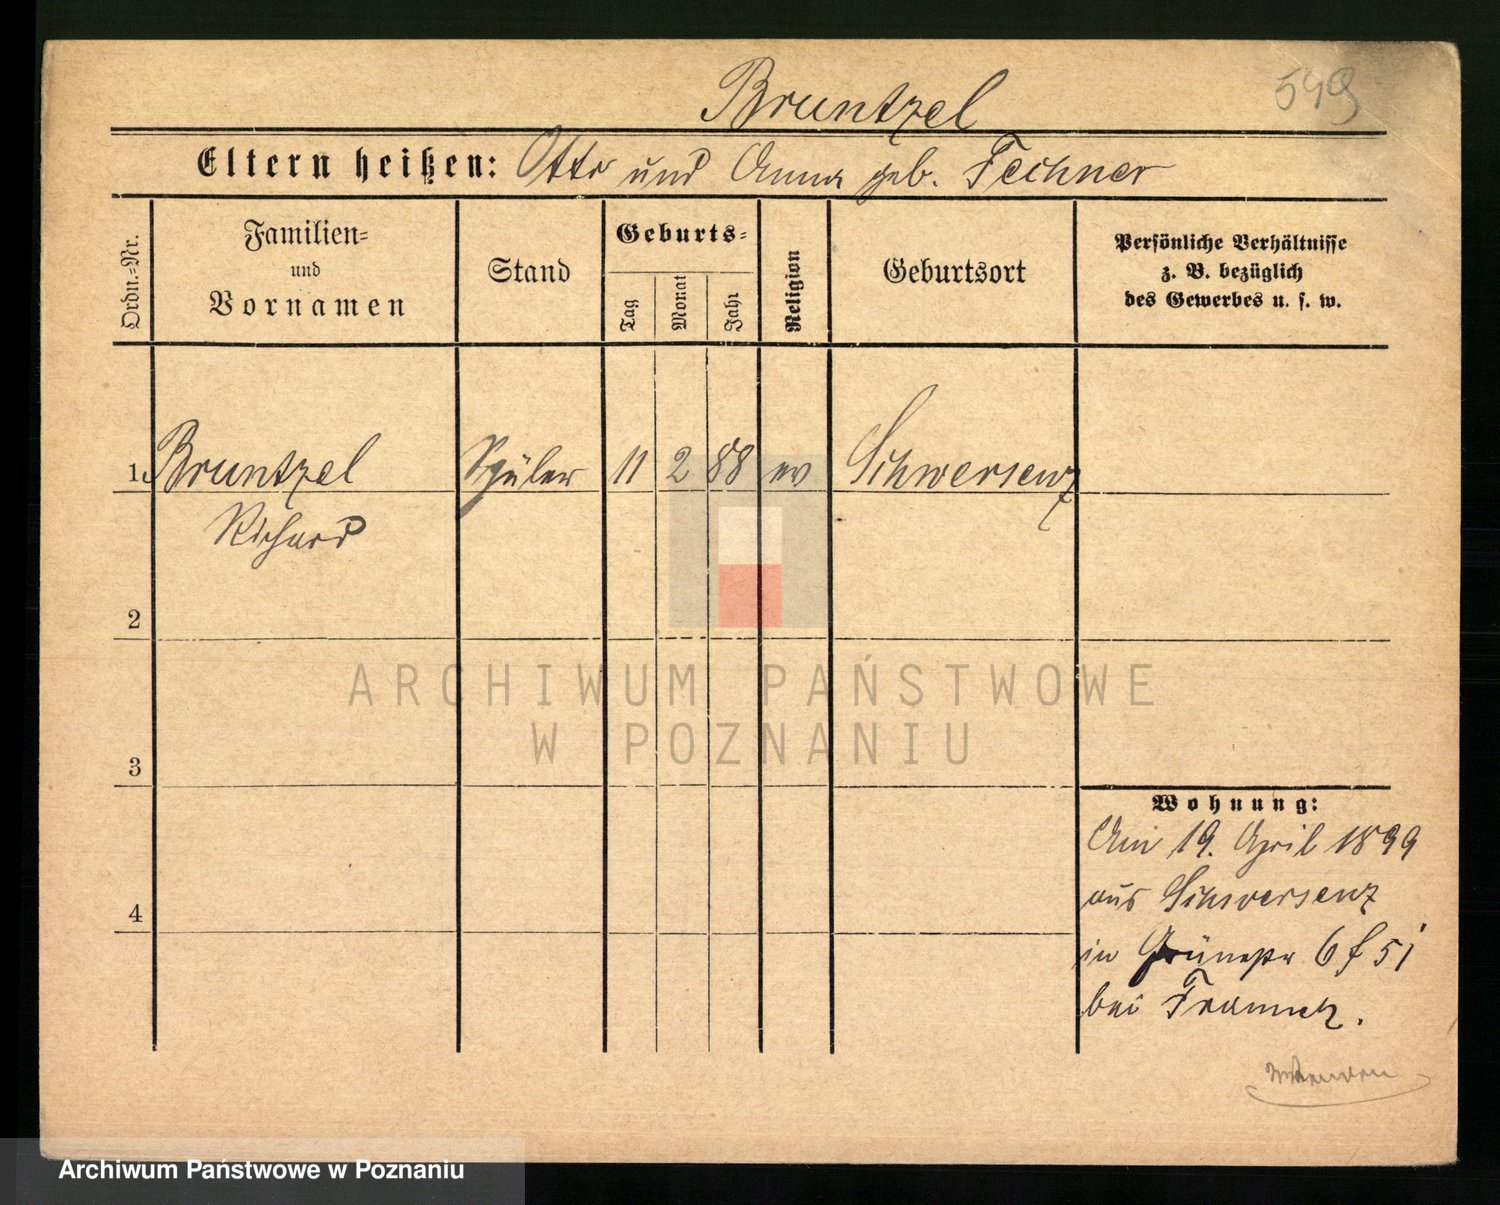 549
Bruntzel
Eltern heißen: Otto und Anna geb. Fechner
Ordn.-Nr.
Familien- und Vornamen
Stand
Geburts-
Tag
Monat
Jahr
Religion
Geburtsort
Persönliche Verhältnisse
z. B. bezüglich
des Gewerbes u. s. w.
1. Bruntzel Schüler 11 2 88 ev Schwersenz
Richard
2
ARCHIWUM PAŃSTWOWE
W POZNANIU
3
Wohnung:
Am 19. April 1899
aus Schwersenz
4
in Grünestr 6
bei
Archiwum Państwowe w Poznaniu